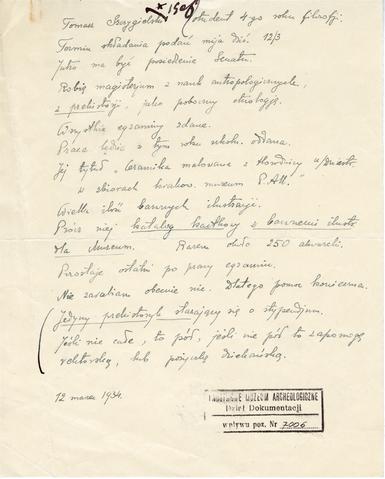 * 1906
Tomasz student 4-go roku filozofji.
Termin składania podań mija dziś. 12/3
Jutro ma być posiedzenie Senatu.
Robię magisterjum z nauk antropologicznych,
z prehistorji, jako poboczny etnologję.
Wszystkie egzaminy zdane.
Praca będzie w tym roku szkol. oddana.
Jej tytuł „Ceramika malowana z Horodnicy n/Dniest.
w zbiorach krakow. muzeum P.A.U."
Wielka ilość barwnych ilustracji.
Prócz niej katalog kartkowy z barwnemi ilustr.
dla Muzeum. Razem około 250 akwareli.
Pozostaje ostatni po pracy egzamin.
Nie zarabiam obecnie nic. Dlatego pomoc konieczna.
Jedyny prehistoryk starający się o stypendjum.
Jeśli nie całe, to pół, jeśli nie pół to zapomogę
rektorską, lub pożyczkę dziekańską.
12 marca 1934.
MUZEUM ARCHEOLOGICZNE
Dział Dokumentacji
wpływu poz. Nr 7006